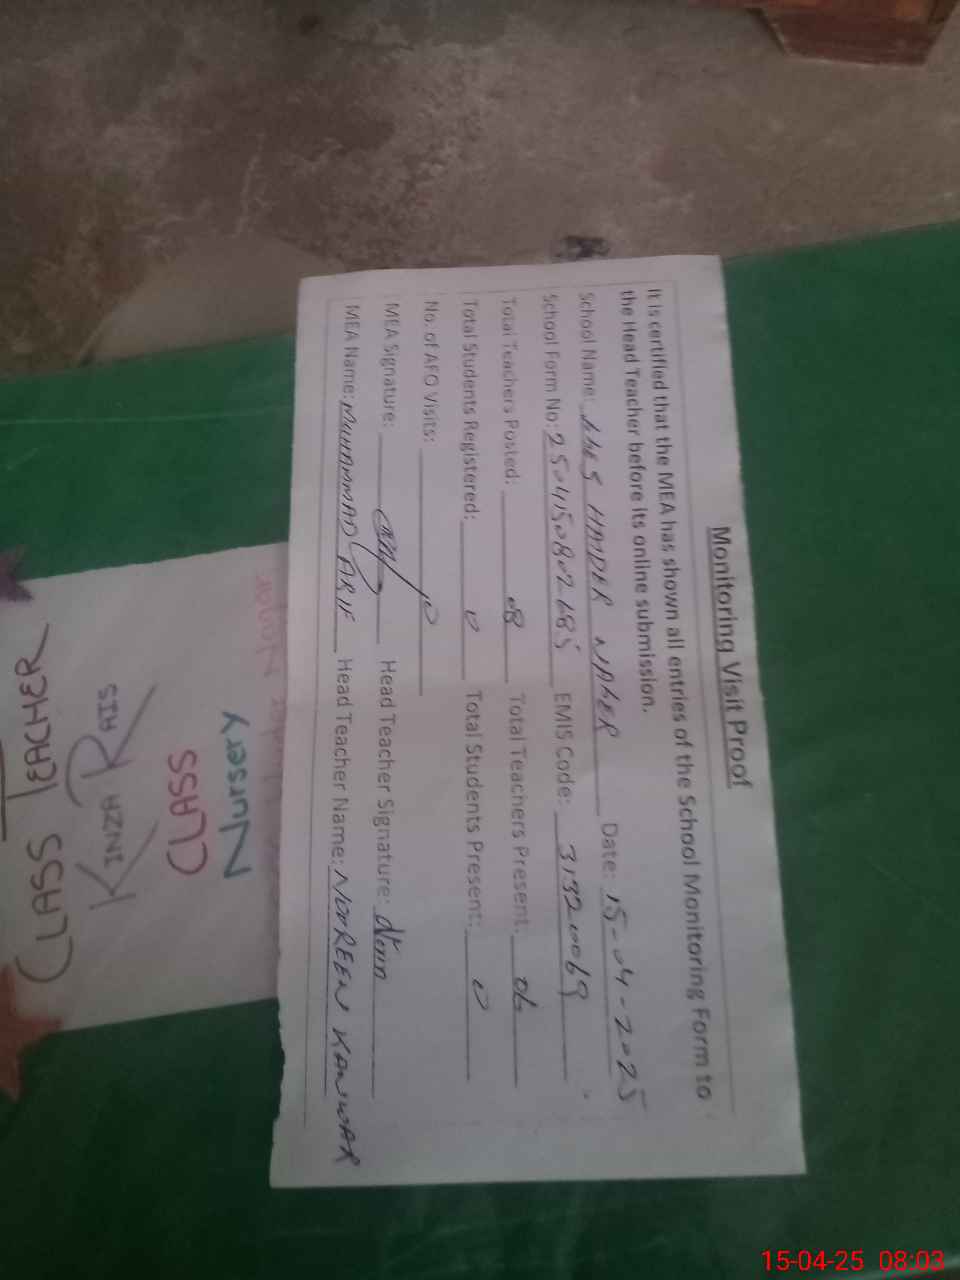 Monitoring Visit Proof
It is certified that the MEA has shown all entries of the School Monitoring Form to
the Head Teacher before its online submission.
School Name: HAIDER Date: 15-04-2025
School Form No: 2504150802685 EMIS Code: 31320069
Total Teachers Posted: 08 Total Teachers Present: 06
Total Students Registered: 0 Total Students Present: 0
No. of AFO Visits: 0
MEA Signature: Head Teacher Signature:
MEA Name: MUHAMMAD ARIF Head Teacher Name: NOOREEN KANWAR
Nursery
CLASS
KINZA RAIS
CLASS TEACHER
15-04-25 08:03